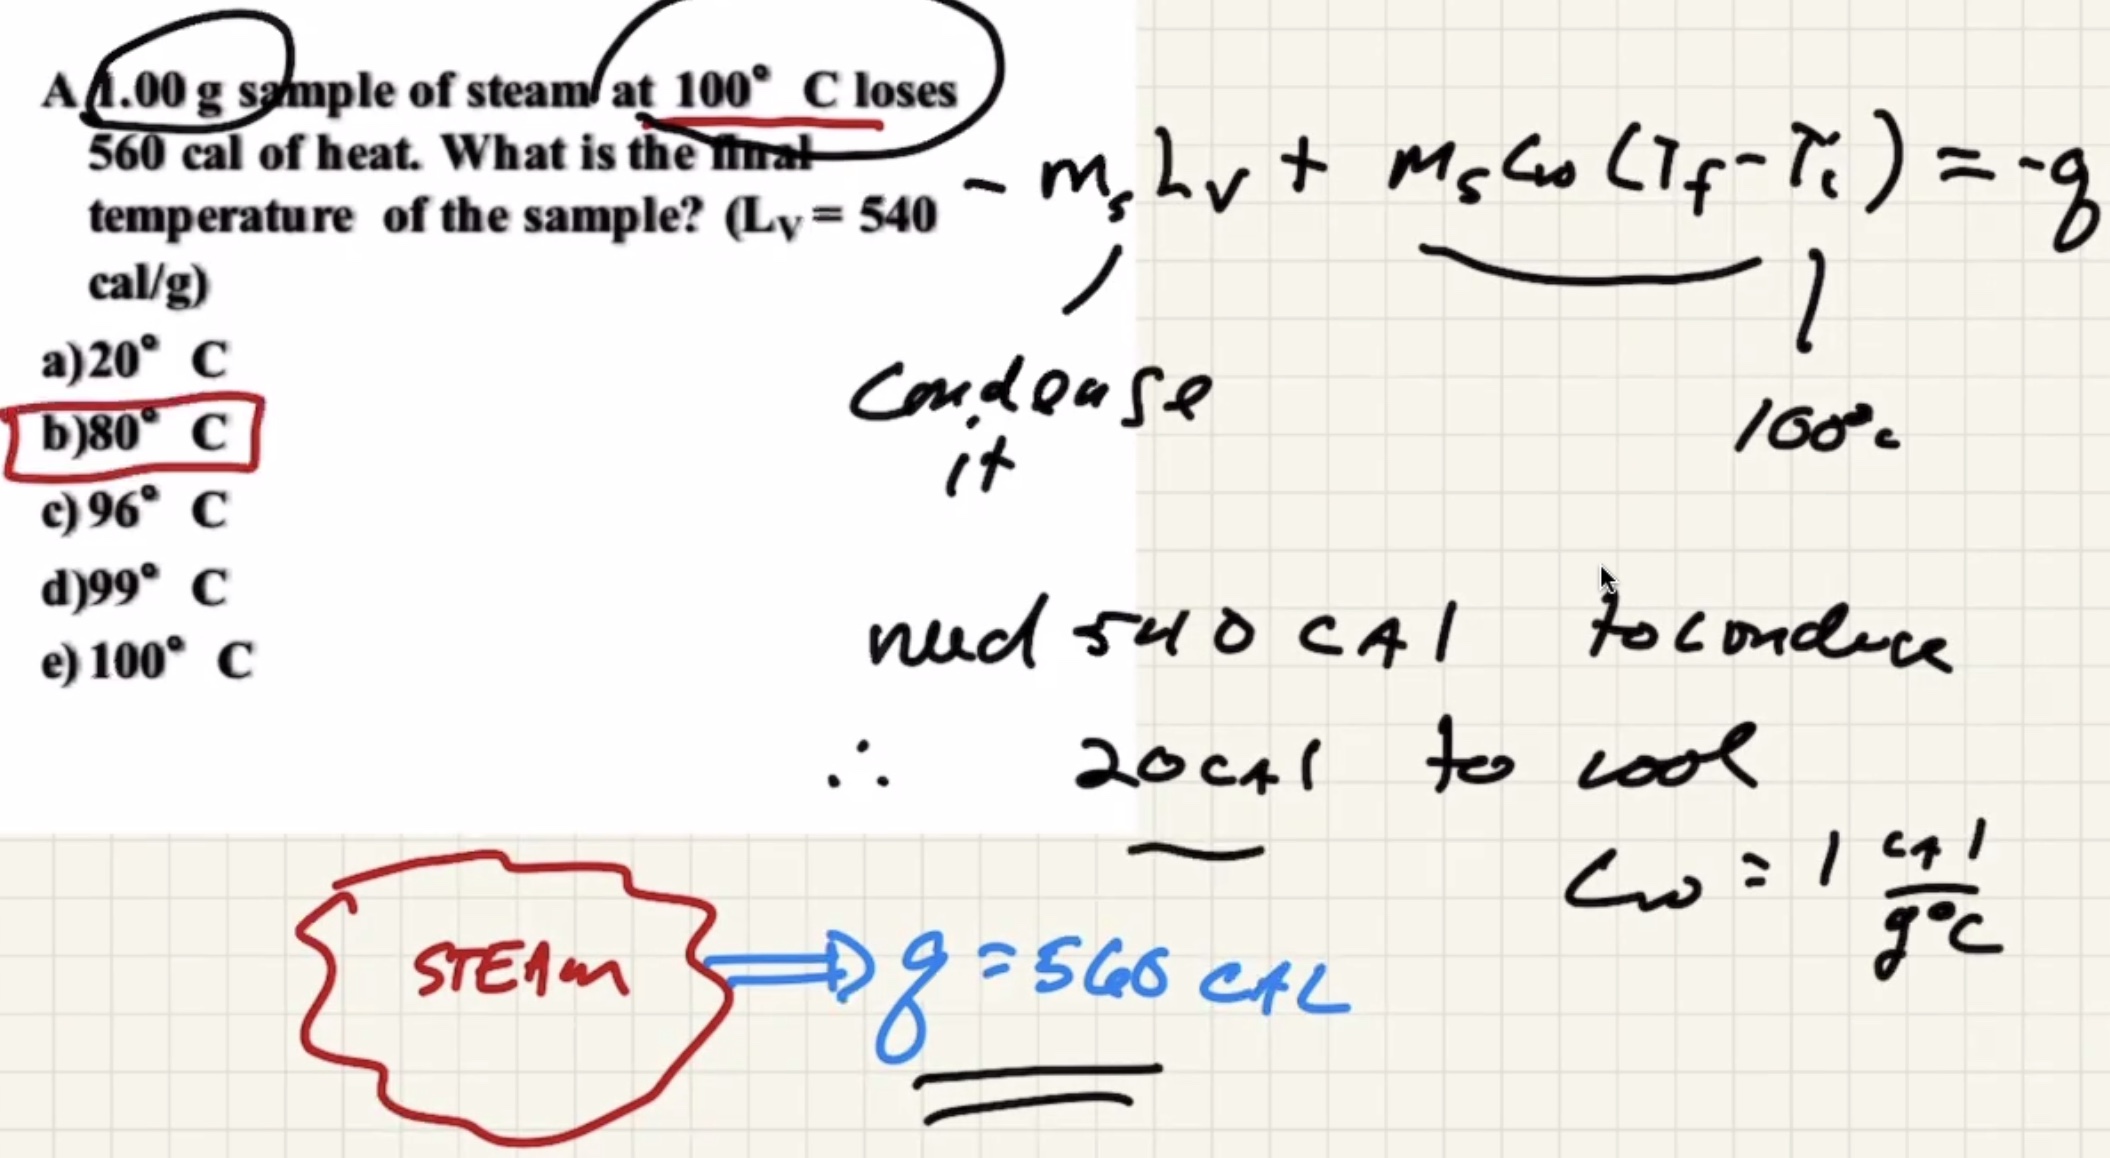 A 1.00 g sample of steam at 100° C loses
560 cal of heat. What is the final
temperature of the sample? (L_V = 540
cal/g)
a)20° C
b)80° C
c) 96° C
d)99° C
e) 100° C
- m_s L_V + m_s C_w (T_f - T_i) = -q
condense
it
100°c
need 540 CAl to condense
∴ 20 CAl to cool
C_w = 1 CAl/g°C
STEAm
q = 560 CAL